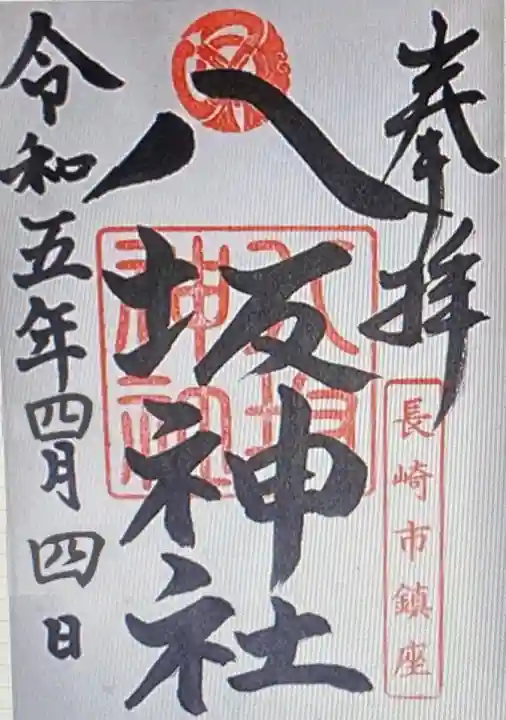 奉拝
長崎市鎮座
八坂神社
八坂神社
令和五年四月四日